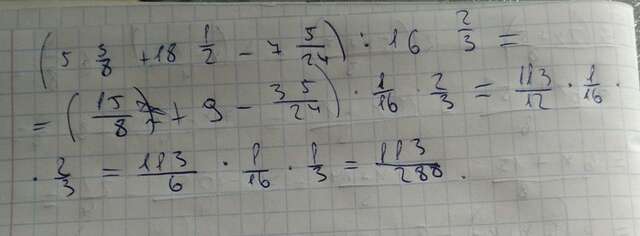 (5 3/8 + 18 1/2 − 7 5/24) : 16 2/3 =
= (15/8 + 9 − 35/24) · 1/16 · 2/3 = 113/12 · 1/16 ·
· 2/3 = 113/6 · 1/16 · 1/3 = 113/288.